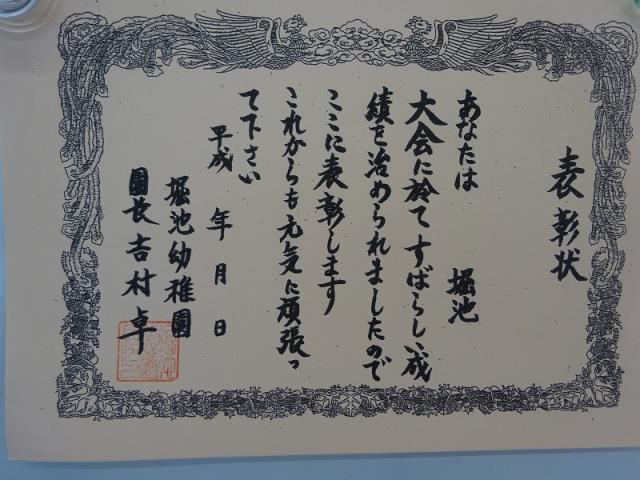 表彰状
堀池
あなたは
大会に於てすばらしい成
績を治められましたので
ここに表彰します
これからも元気に頑張っ
て下さい
平成　年　月　日
堀池幼稚園
園長 吉村卓